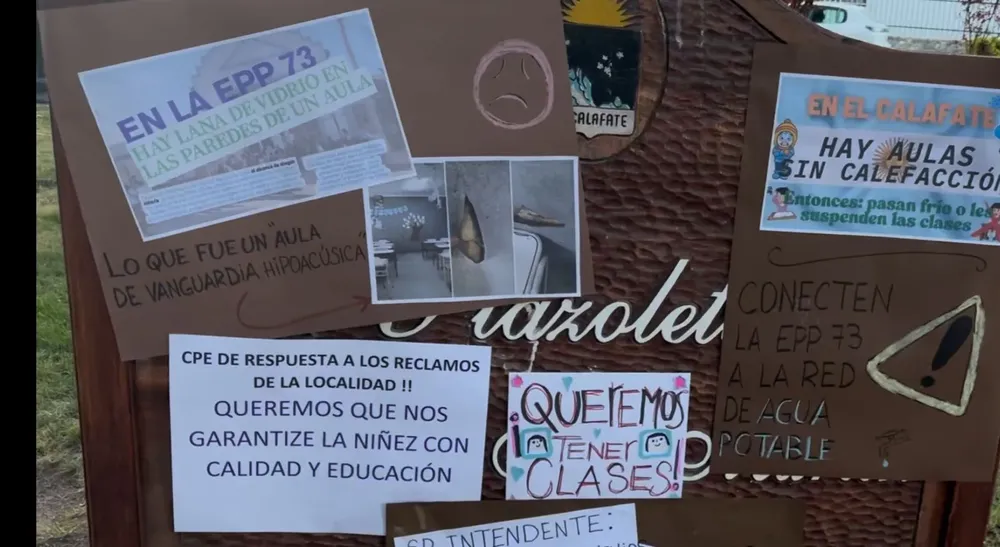 EN LA EPP 73
HAY LANA DE VIDRIO EN
LAS PAREDES DE UN AULA
LO QUE FUE UN "AULA
DE VANGUARDIA HIPOACÚSICA"
CALAFATE
EN EL CALAFATE
HAY AULAS
SIN CALEFACCIÓN
Entonces: pasan frío o les
suspenden las clases
CONECTEN
LA EPP 73
A LA RED
DE AGUA
POTABLE
CPE DE RESPUESTA A LOS RECLAMOS
DE LA LOCALIDAD !!
QUEREMOS QUE NOS
GARANTIZE LA NIÑEZ CON
CALIDAD Y EDUCACIÓN
¡QUEREMOS
TENER
CLASES!
SR INTENDENTE: